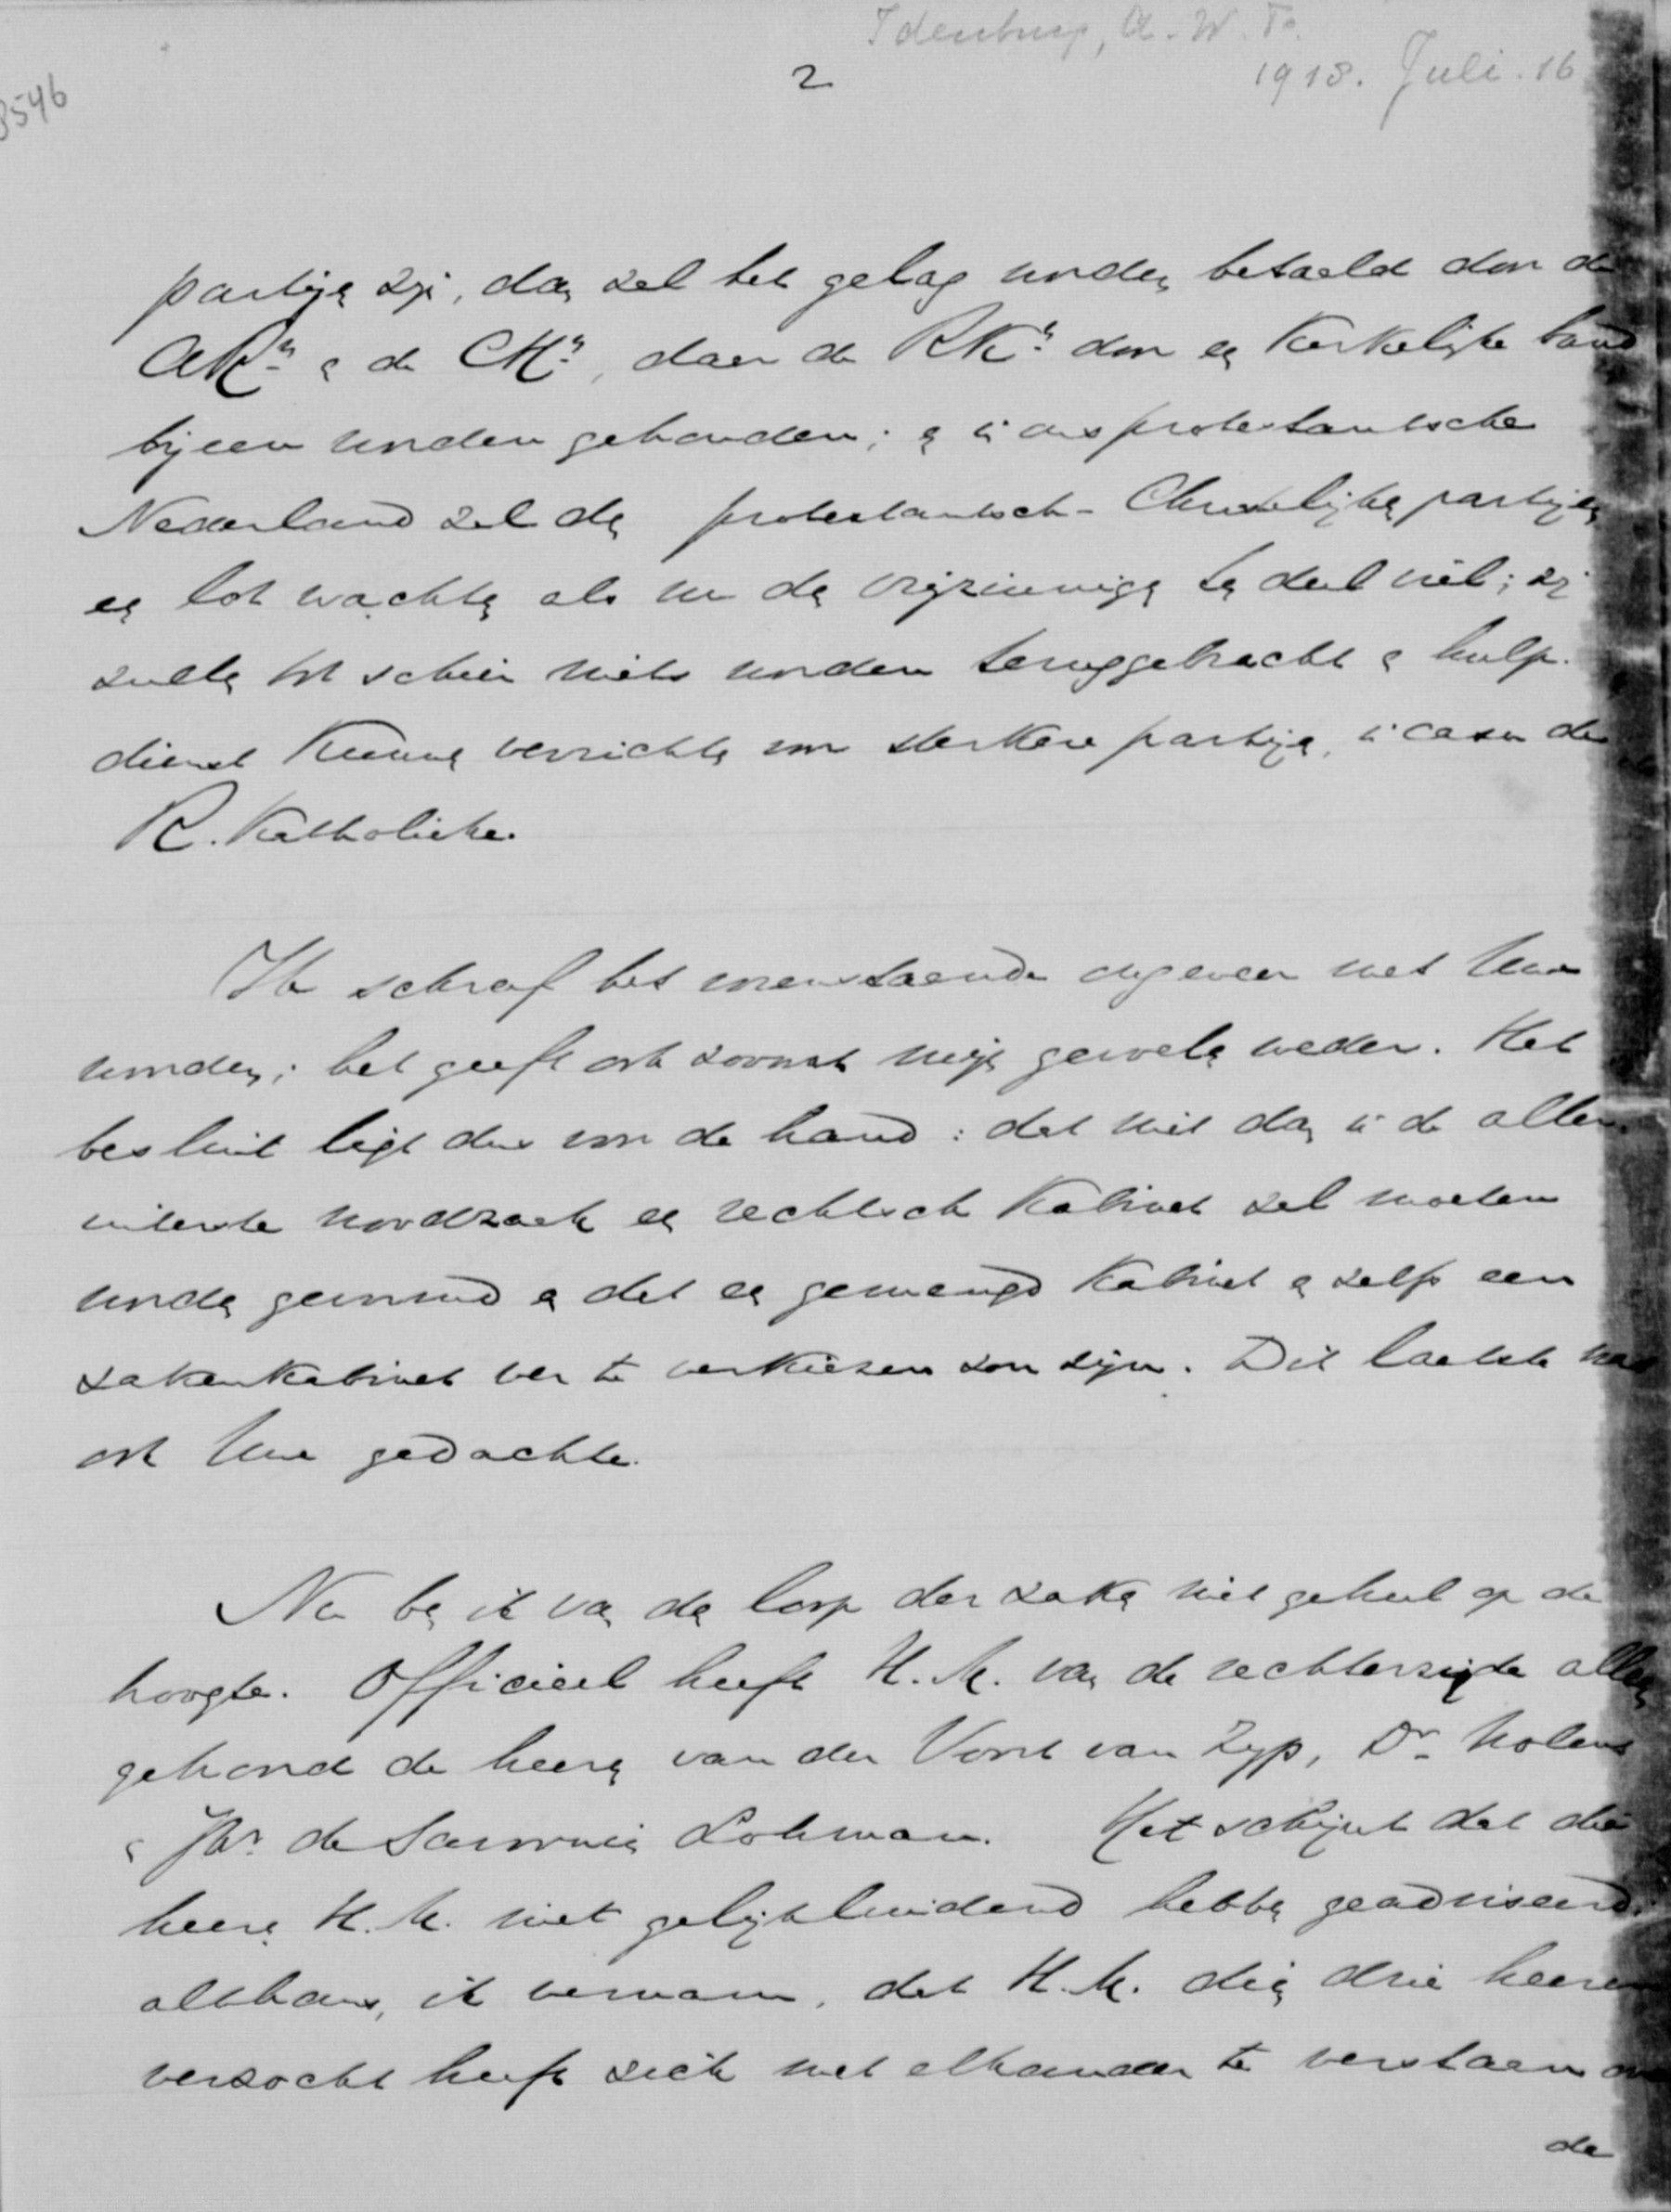 Idenburg, A. W. F.
2
1918. Juli. 16
8546
partijen zijn, dan zal het gelag worden betaald door de
ARn en de CHn, daar de RKn door een Kerkelijke band
bijeen worden gehouden; en in ons protestantsche
Nederland zal de protestantsch-Christelijke partijen
een lot wachten als nu de vrijzinnigen ten deel viel; zij
zullen tot schier niets worden teruggebracht en hulp-
dienst kunnen verrichten voor sterkere partijen, in casu de
R. Katholieke.
Ik schreef het bovenstaande ongeveer met Uwe
woorden; het geeft ook zoowat mijn gevoelen weder. Het
besluit ligt dus voor de hand: dat niet dan in de aller-
uiterste noodzaak een rechtsch Kabinet zal moeten
worden gevormd en dat een gemengd Kabinet en zelfs een
zakenkabinet ver te verkiezen zou zijn. Dit laatste was
ook Uwe gedachte.
Nu ben ik van den loop der zaken niet geheel op de
hoogte. Officieel heeft H.M. van de rechterzijde alleen
gehoord de heeren van der Voort van Zyp, Dr. Nolens
en Jhr. de Savornin Lohman. Het schijnt dat die
heeren H.M. niet gelijkluidend hebben geadviseerd;
althans, ik vernam, dat H.M. die drie heeren
verzocht heeft zich met elkander te verstaan over
de